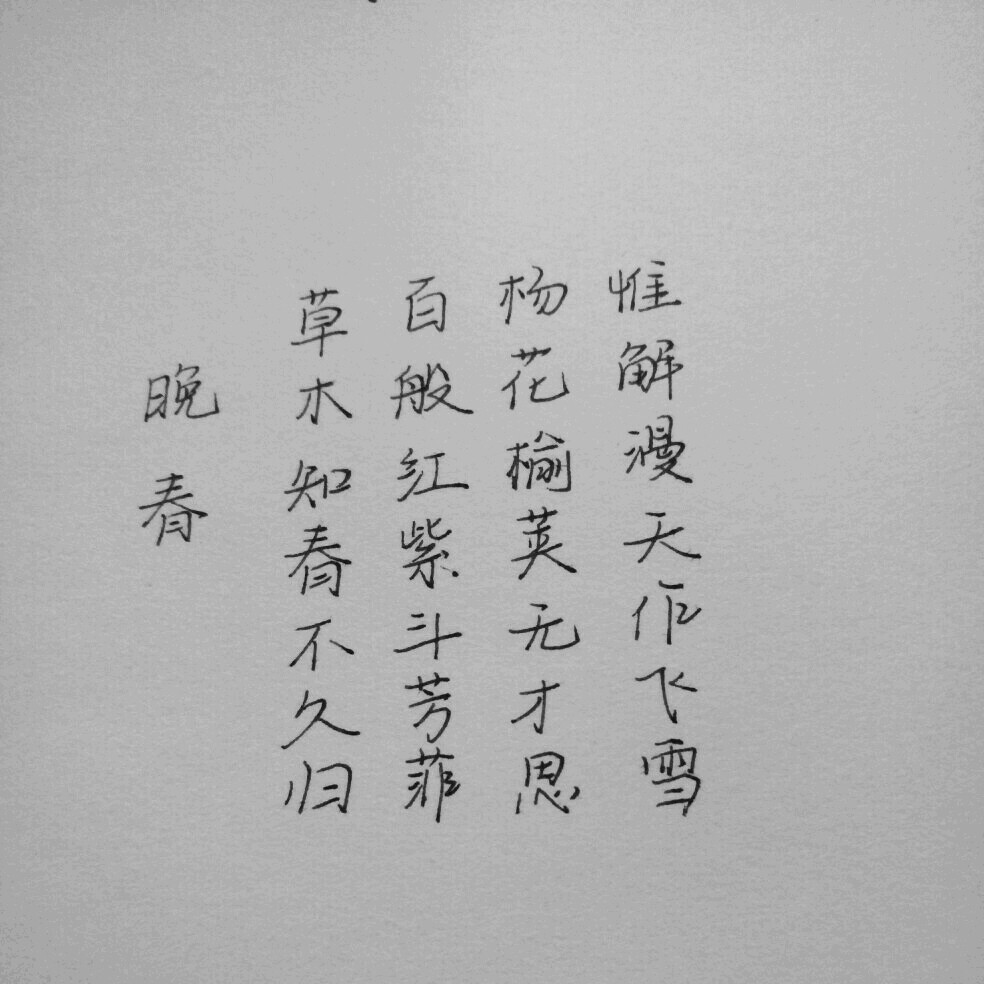 晚春
草木知春不久归
百般红紫斗芳菲
杨花榆荚无才思
惟解漫天作飞雪